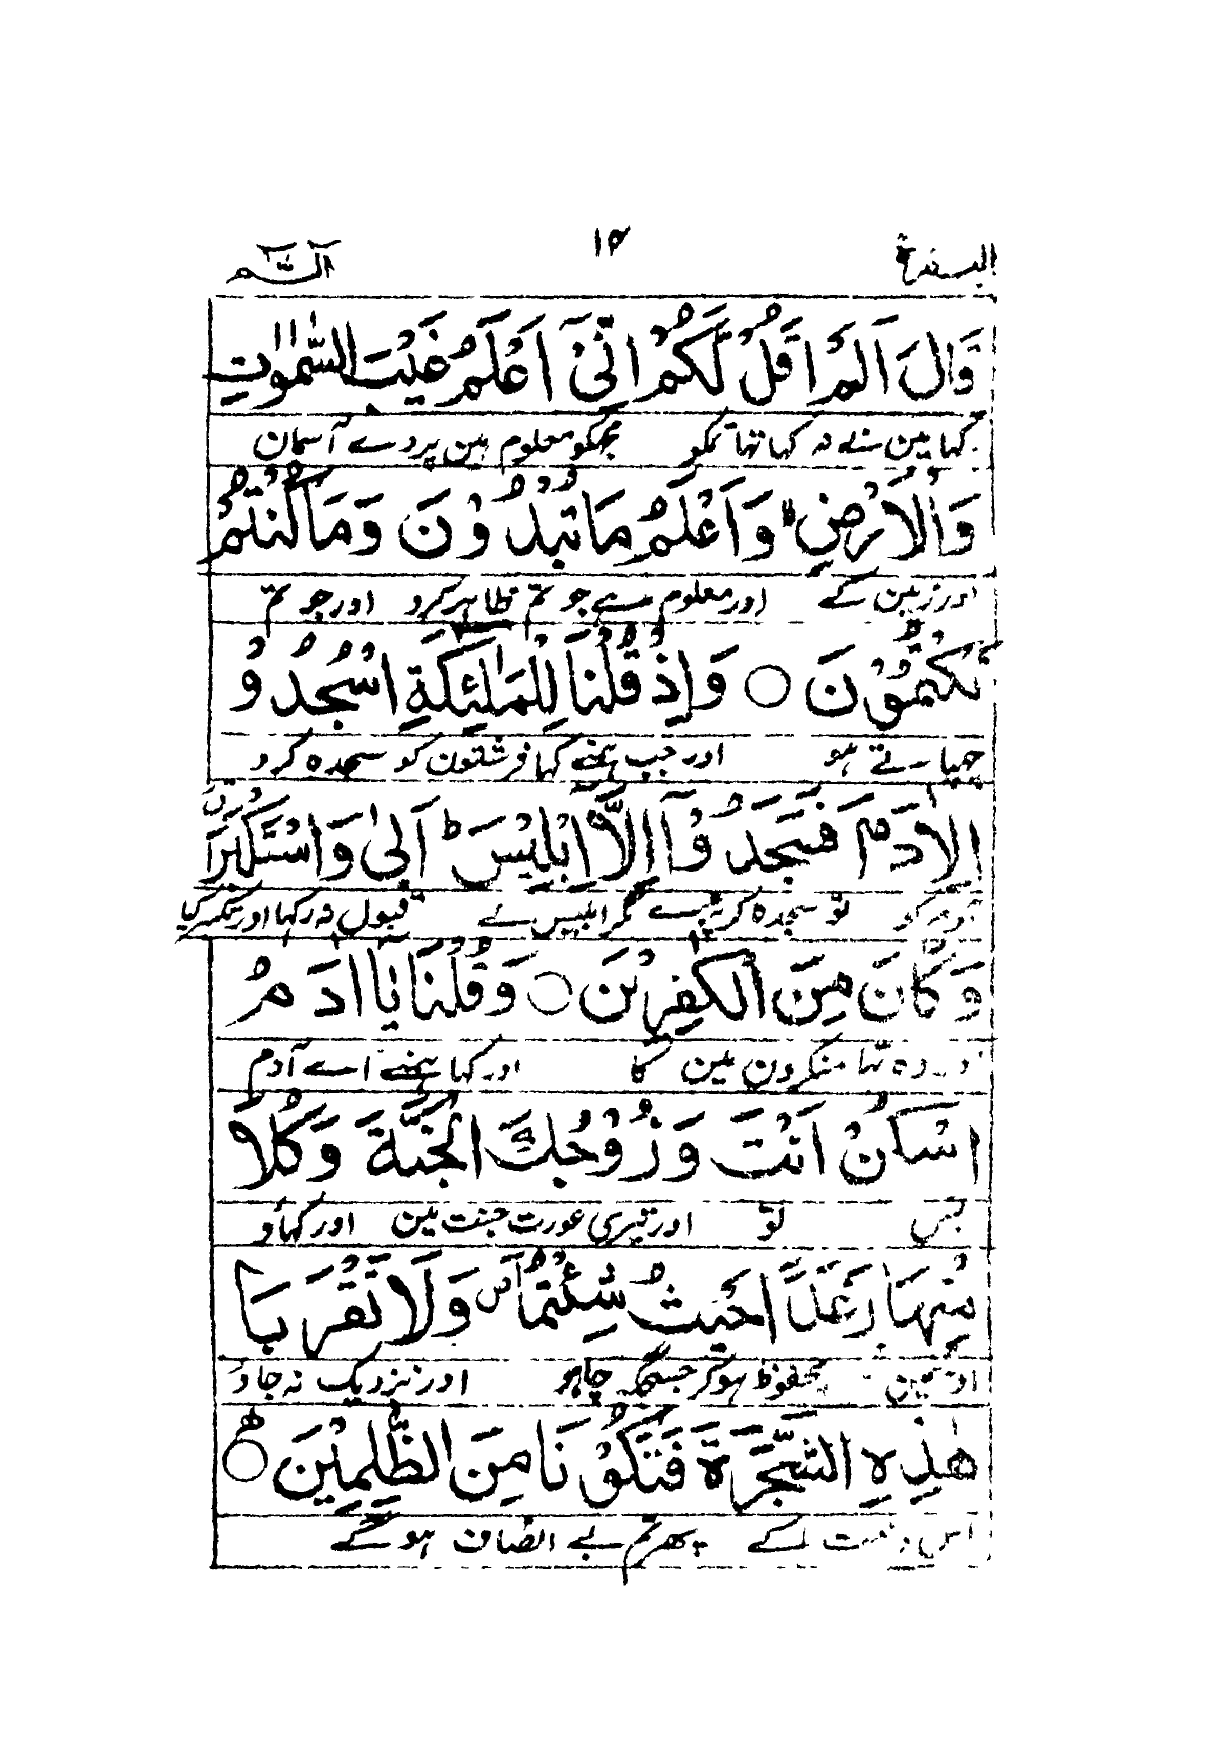 البقرة ۱۴ الٓمّٓ
قَالَ اَلَمْ اَقُلْ لَّكُمْ اِنِّیْٓ اَعْلَمُ غَیْبَ السَّمٰوٰتِ
کہا مین نے نہ کہا تھا تمکو مجھکو معلوم ہین پردے آسمان
وَالْاَرْضِ وَاَعْلَمُ مَا تُبْدُوْنَ وَمَا كُنْتُمْ
اور زمین کے اور معلوم ہے جو تم ظاہر کرو اور جو تم
تَكْتُمُوْنَ ○ وَاِذْ قُلْنَا لِلْمَلٰٓئِكَةِ اسْجُدُوْ
چھپاتے ہو اور جب ہمنے کہا فرشتون کو سجدہ کرو
لِاٰدَمَ فَسَجَدُوْٓا اِلَّآ اِبْلِیْسَ ؕ اَبٰی وَاسْتَكْبَرَ
آدم کو تو سجدہ کر پڑے مگر ابلیس نے قبول نہ رکہا اور تکبر کیا
وَكَانَ مِنَ الْكٰفِرِیْنَ ○ وَقُلْنَا یٰٓا اٰدَمُ
اور وہ تہا منکرون مین کا اور کہا ہمنے اے آدم
اسْكُنْ اَنْتَ وَزَوْجُكَ الْجَنَّةَ وَكُلَا
بس تو اور تیری عورت جنت مین اور کہاؤ
مِنْهَا رَغَدًا حَیْثُ شِئْتُمَا وَلَا تَقْرَبَا
اوسمین محفوظ ہوکر جس جگہ چاہو اور نزدیک نہ جاؤ
هٰذِهِ الشَّجَرَةَ فَتَكُوْنَا مِنَ الظّٰلِمِیْنَ ○
اس درخت کے پھر تم بے انصاف ہوگے